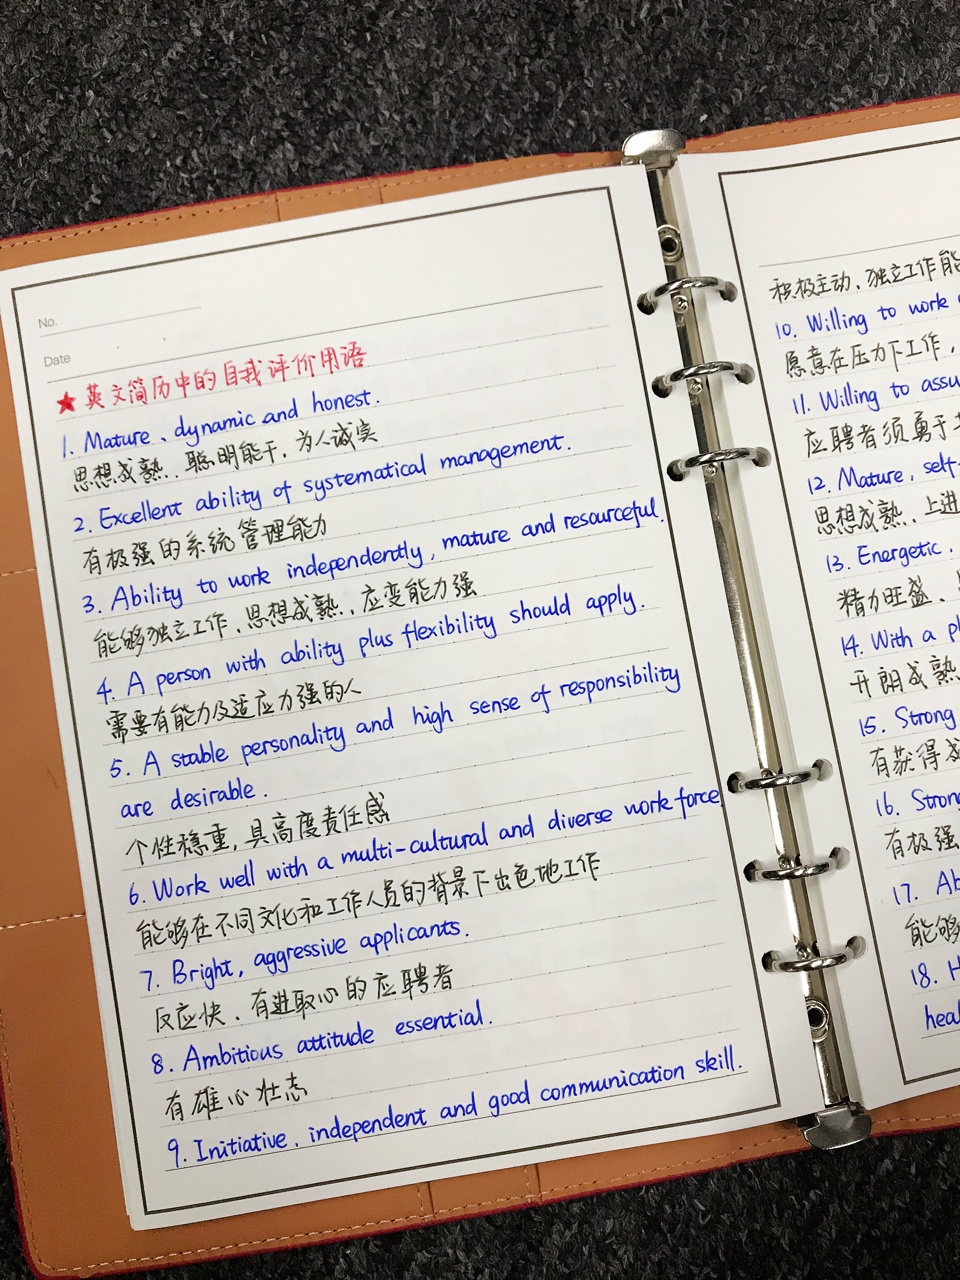 No.
Date
★英文简历中的自我评价用语
1. Mature、dynamic and honest.
思想成熟、聪明能干、为人诚实
2. Excellent ability of systematical management.
有极强的系统管理能力
3. Ability to work independently, mature and resourceful.
能够独立工作、思想成熟、应变能力强
4. A person with ability plus flexibility should apply.
需要有能力及适应力强的人
5. A stable personality and high sense of responsibility
are desirable.
个性稳重,具高度责任感
6. Work well with a multi-cultural and diverse work force.
能够在不同文化和工作人员的背景下出色地工作
7. Bright, aggressive applicants.
反应快、有进取心的应聘者
8. Ambitious attitude essential.
有雄心壮志
9. Initiative、independent and good communication skill.
积极主动、独立工作能
10. Willing to work
愿意在压力下工作,
11. Willing to assu
应聘者须勇于
12. Mature, self-
思想成熟、上进
13. Energetic.
精力旺盛、
14. With a pl
开朗成熟
15. Strong
有获得成
16. Strong
有极强
17. Ab
能够
18. H
heal